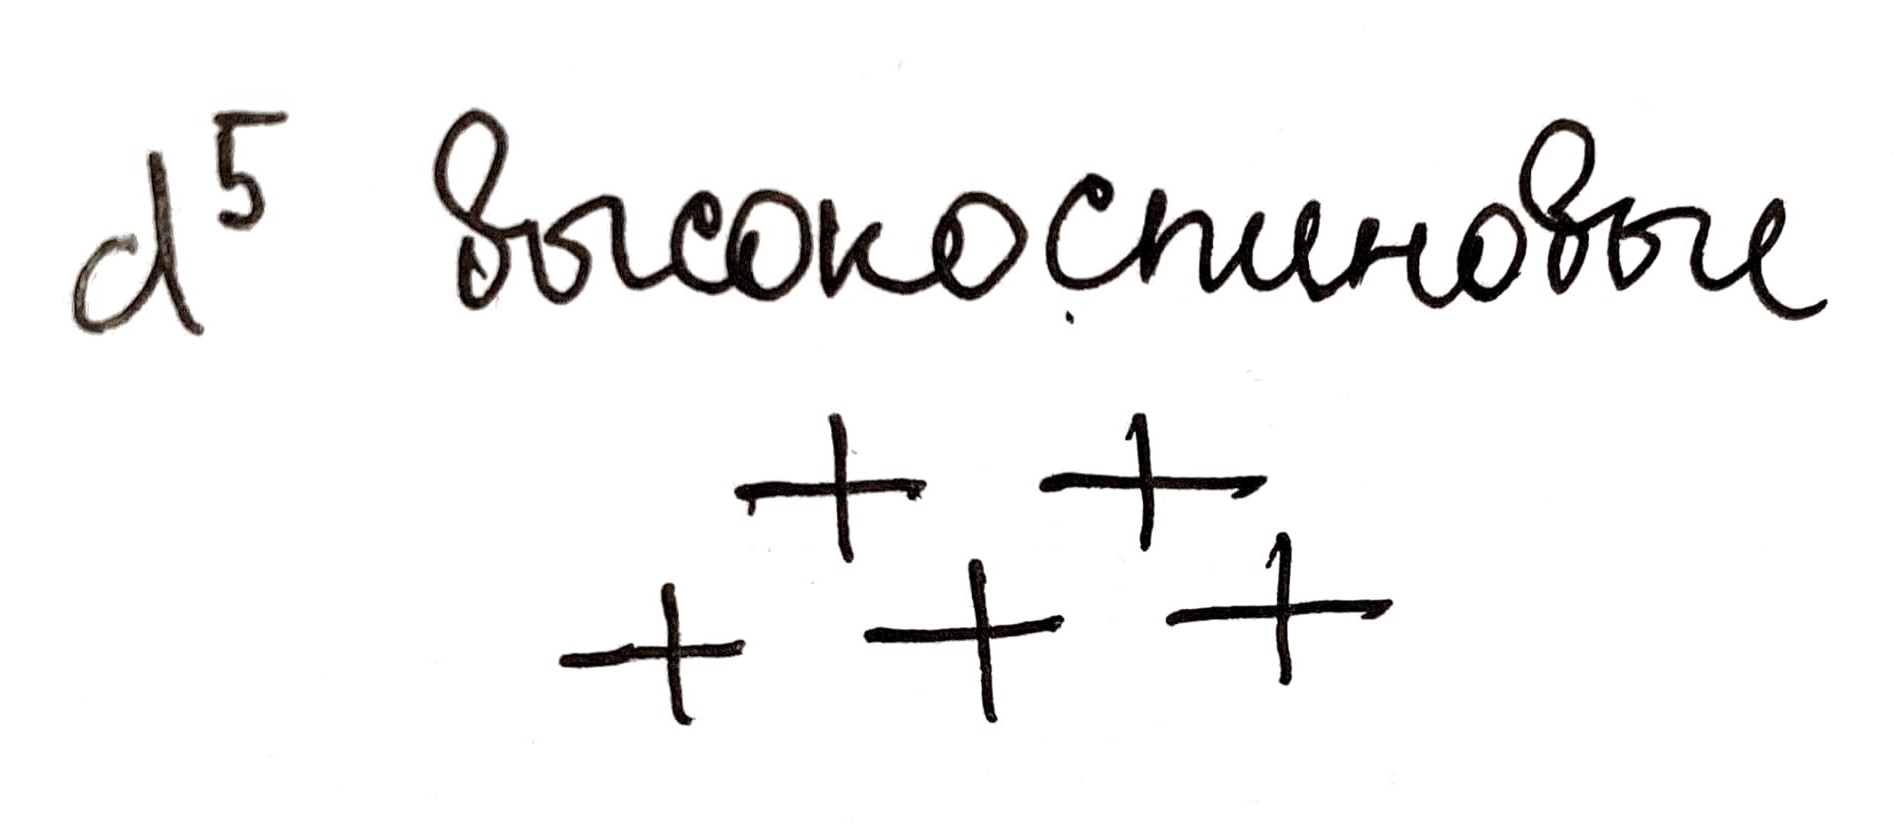 d⁵ высокоспиновые